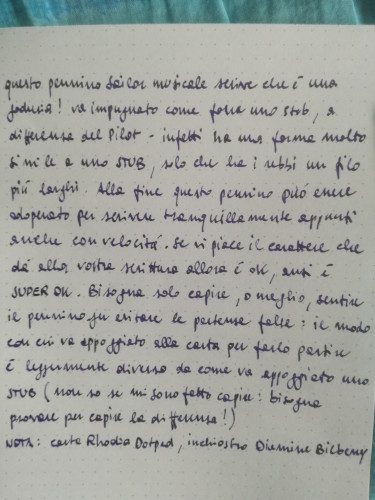 questo pennino Sailor musicale scrive che è una
goduria! va impugnato come fosse uno stub, a
differenza del Pilot - infatti ha una forma molto
simile a uno STUB, solo che ha i rebbi un filo
più larghi. Alla fine questo pennino può essere
adoperato per scrivere tranquillamente appunti
anche con velocità. Se vi piace il carattere che
dà alla vostra scrittura allora è ok, anzi è
SUPER OK. Bisogna solo capire, o meglio, sentire
il pennino per evitare le partenze false: il modo
con cui va appoggiato alla carta per farlo partire
è leggermente diverso da come va appoggiato uno
STUB (non so se mi sono fatto capire: bisogna
provare per capire la differenza!)
NOTA: carta Rhodia Dotpad, inchiostro Diamine Bilberry